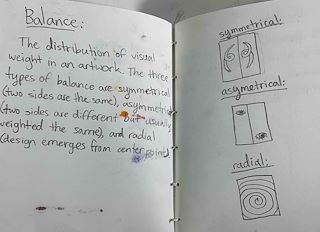 Balance:
The distribution of visual
weight in an artwork. The three
types of balance are symmetrical
(two sides are the same), asymmetrical
(two sides are different but usually
weighted the same), and radial
(design emerges from center point)
symmetrical:
asymetrical:
radial: